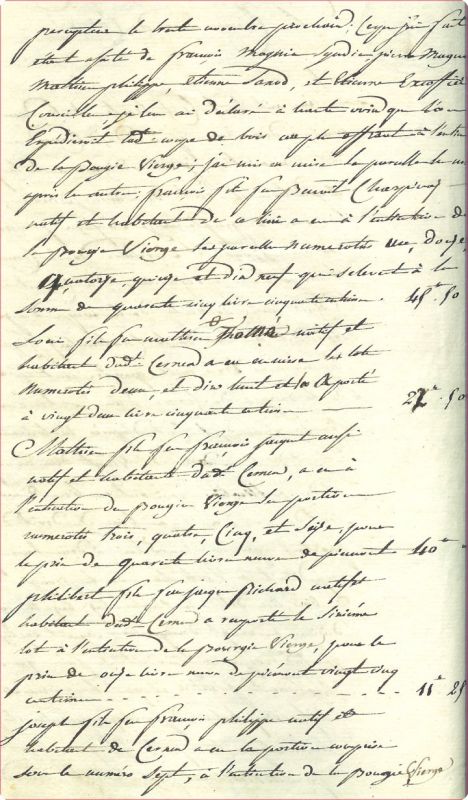 perception le trente novembre prochain; Ce que j'ai fait
étant assisté de françois Magnin Syndic pierre Magnin
Mathieu philippe, etienne Sarod, et Etienne Excoffier
Conseillers, je leur ai déclaré à haute voix que l'on
Expédieroit lad. coupe de bois au plus offrant à l'extinction
de la Bougie Vierge; j'ai mis en mise les parcelles le une
après les autres; françois fils feu Benoit Charpin
natif et habitant de ce lieu a eu à l'extinction de
la Bougie Vierge les parcelles numerotés un, douze,
Quatorze, quinze et dix neuf qui s'elevent à la
somme de quarante cinq livres cinquante centimes. 45 50
Louis fils feu mathieu Thomé natif et
habitant dud. Cernex a eu en mise les lots
Numerotés deux, et dix huit et la a porté
à vingt deux livres cinquante centimes 22 50
Mathieu fils feu françois aussi
natif et habitant dud. Cernex, a eu à
l'extinction de Bougie Vierge les portions
numerotés trois, quatre, Cinq, et Seize, pour
le prix de quarante livres neuves de piemont 40
philibert fils feu jacques Richard natif et
habitant dud. Cernex a rapporté le Sixième
lot à l'extinction de la Bourgie Vierge, pour le
prix de onze livres neuves de piemont vingt cinq
centimes 11 25
joseph fils feu françois philippe natif et
habitant de Cernex a eu la portion comprise
sous le numero Sept, à l'extinction de la Bougie Vierge